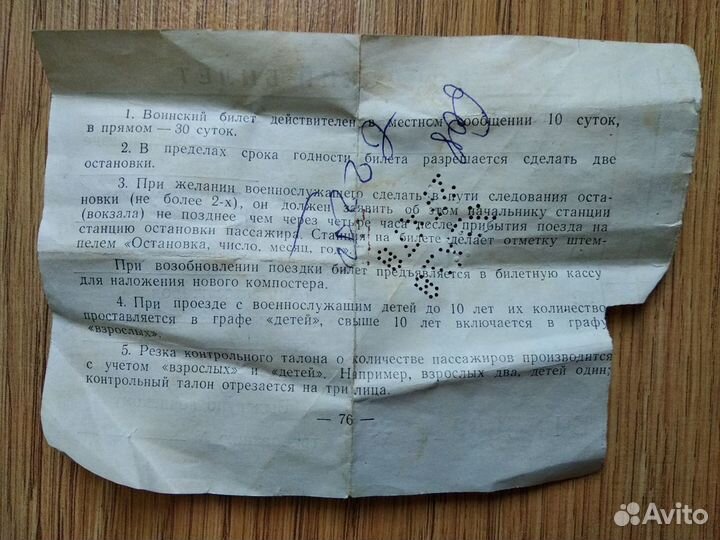 1. Воинский билет действителен в местном сообщении 10 суток,
в прямом — 30 суток.
2. В пределах срока годности билета разрешается сделать две
остановки.
3. При желании военнослужащего сделать в пути следования оста-
новки (не более 2-х), он должен заявить об этом начальнику станции
(вокзала) не позднее чем через четыре часа после прибытия поезда на
станцию остановки пассажира. Станция на билете делает отметку штем-
пелем «Остановка, число, месяц, год».
При возобновлении поездки билет предъявляется в билетную кассу
для наложения нового компостера.
4. При проезде с военнослужащим детей до 10 лет их количество
проставляется в графе «детей», свыше 10 лет включается в графу
«взрослых».
5. Резка контрольного талона о количестве пассажиров производится
с учетом «взрослых» и «детей». Например, взрослых два, детей один;
контрольный талон отрезается на три лица.
— 76 —
Avito